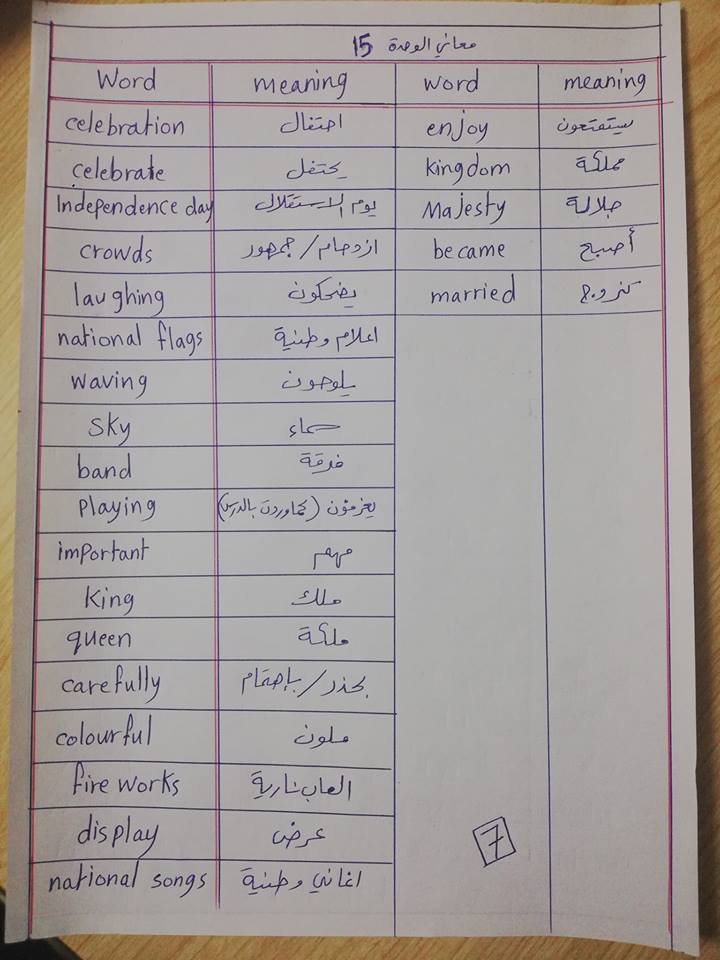 معاني الوحدة 15
Word meaning word meaning
celebration احتفال enjoy يستمتعون
celebrate يحتفل kingdom مملكة
Independence day يوم الاستقلال Majesty جلالة
crowds ازدحام / جمهور became أصبح
laughing يضحكون married تزوج
national flags اعلام وطنية
waving يلوحون
sky سماء
band فرقة
playing يعزفون (كما وردت بالدرس)
important مهم
King ملك
queen ملكة
carefully بحذر / بإهتمام
colourful ملون
fire works العاب نارية
display عرض
national songs اغاني وطنية
7